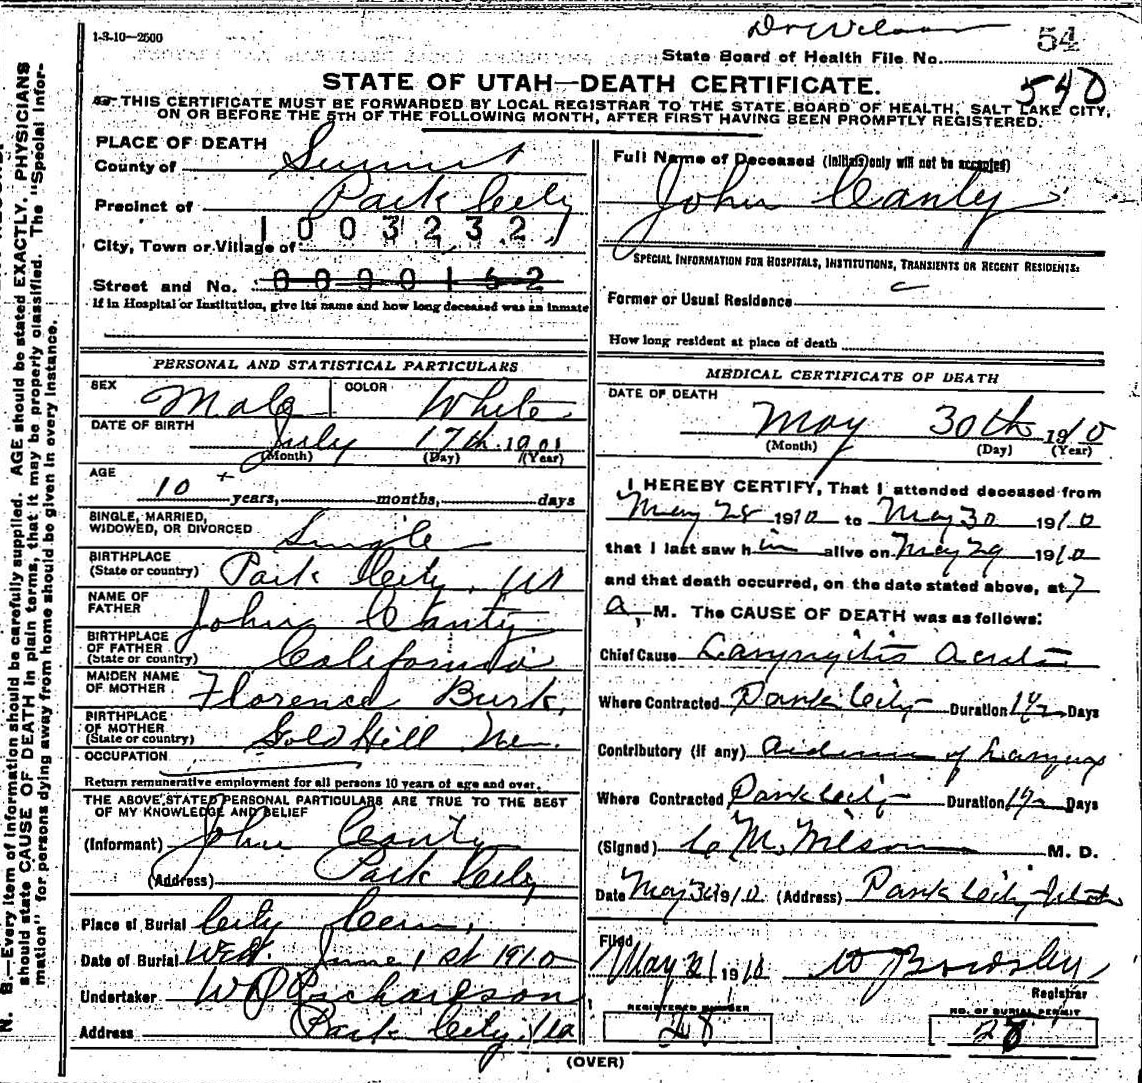 1-3-10—2500
Dr Wilson
54
State Board of Health File No.
540
STATE OF UTAH—DEATH CERTIFICATE.
THIS CERTIFICATE MUST BE FORWARDED BY LOCAL REGISTRAR TO THE STATE BOARD OF HEALTH, SALT LAKE CITY,
ON OR BEFORE THE 5TH OF THE FOLLOWING MONTH, AFTER FIRST HAVING BEEN PROMPTLY REGISTERED.
PLACE OF DEATH
County of Summit
Precinct of Park City
1003232
City, Town or Village of
Street and No. 0000162
If in Hospital or Institution, give its name and how long deceased was an inmate
PERSONAL AND STATISTICAL PARTICULARS
SEX Male COLOR White
DATE OF BIRTH July 17th
(Month) (Day) (Year)
AGE
10 + years, months, days
SINGLE, MARRIED,
WIDOWED, OR DIVORCED Single
BIRTHPLACE
(State or country) Park City, Ut
NAME OF
FATHER John Canty
BIRTHPLACE
OF FATHER
(State or country) California
MAIDEN NAME
OF MOTHER Florence Burk
BIRTHPLACE
OF MOTHER
(State or country) Gold Hill Ne.
OCCUPATION
Return remunerative employment for all persons 10 years of age and over.
THE ABOVE STATED PERSONAL PARTICULARS ARE TRUE TO THE BEST
OF MY KNOWLEDGE AND BELIEF
(Informant) John Canty
(Address) Park City
Place of Burial City Cem.
Date of Burial Wed. June 1st 1910
Undertaker W P Richardson
Address Park City, Ua
Full Name of Deceased (Initials only will not be accepted)
John Canty
SPECIAL INFORMATION FOR HOSPITALS, INSTITUTIONS, TRANSIENTS OR RECENT RESIDENTS:
Former or Usual Residence
How long resident at place of death
MEDICAL CERTIFICATE OF DEATH
DATE OF DEATH
May 30th 1910
(Month) (Day) (Year)
I HEREBY CERTIFY, That I attended deceased from
May 28 1910 to May 30 1910
that I last saw him alive on May 29 1910
and that death occurred, on the date stated above, at 7
a, M. The CAUSE OF DEATH was as follows:
Chief Cause Laryngitis Acute
Where Contracted Park City Duration 1½ Days
Contributory (if any) of Larynx
Where Contracted Park City Duration 1½ Days
(Signed) C M. Wilson M. D.
Date May 1910 (Address) Park City Utah
Filed
May 31 1910 W Bowsley
Registrar
REGISTERED NUMBER
28
NO. OF BURIAL PERMIT
28
(OVER)
N. B.—Every item of information should be carefully supplied. AGE should be stated EXACTLY. PHYSICIANS
should state CAUSE OF DEATH in plain terms, that it may be properly classified. The "Special Infor-
mation" for persons dying away from home should be given in every instance.